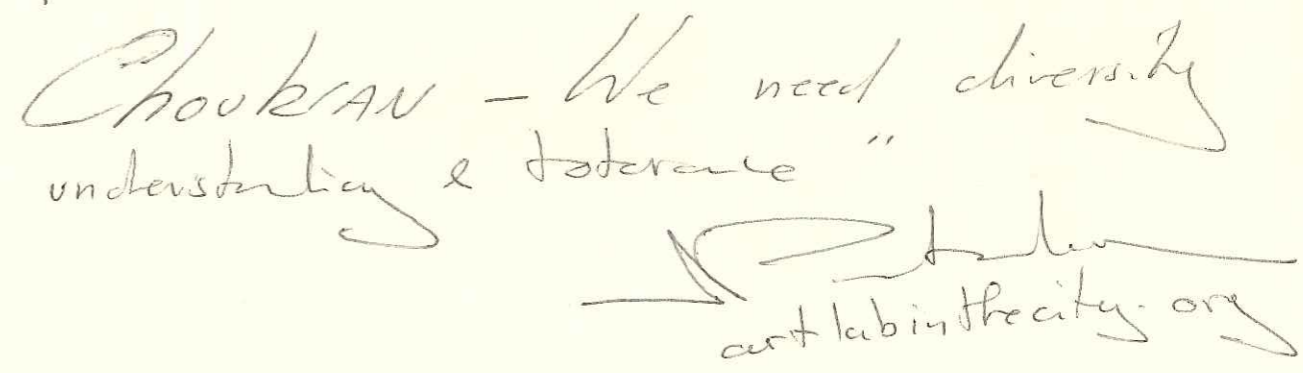 Choukran - We need diversity
understanding & tolerance "
artlabinthecity.org